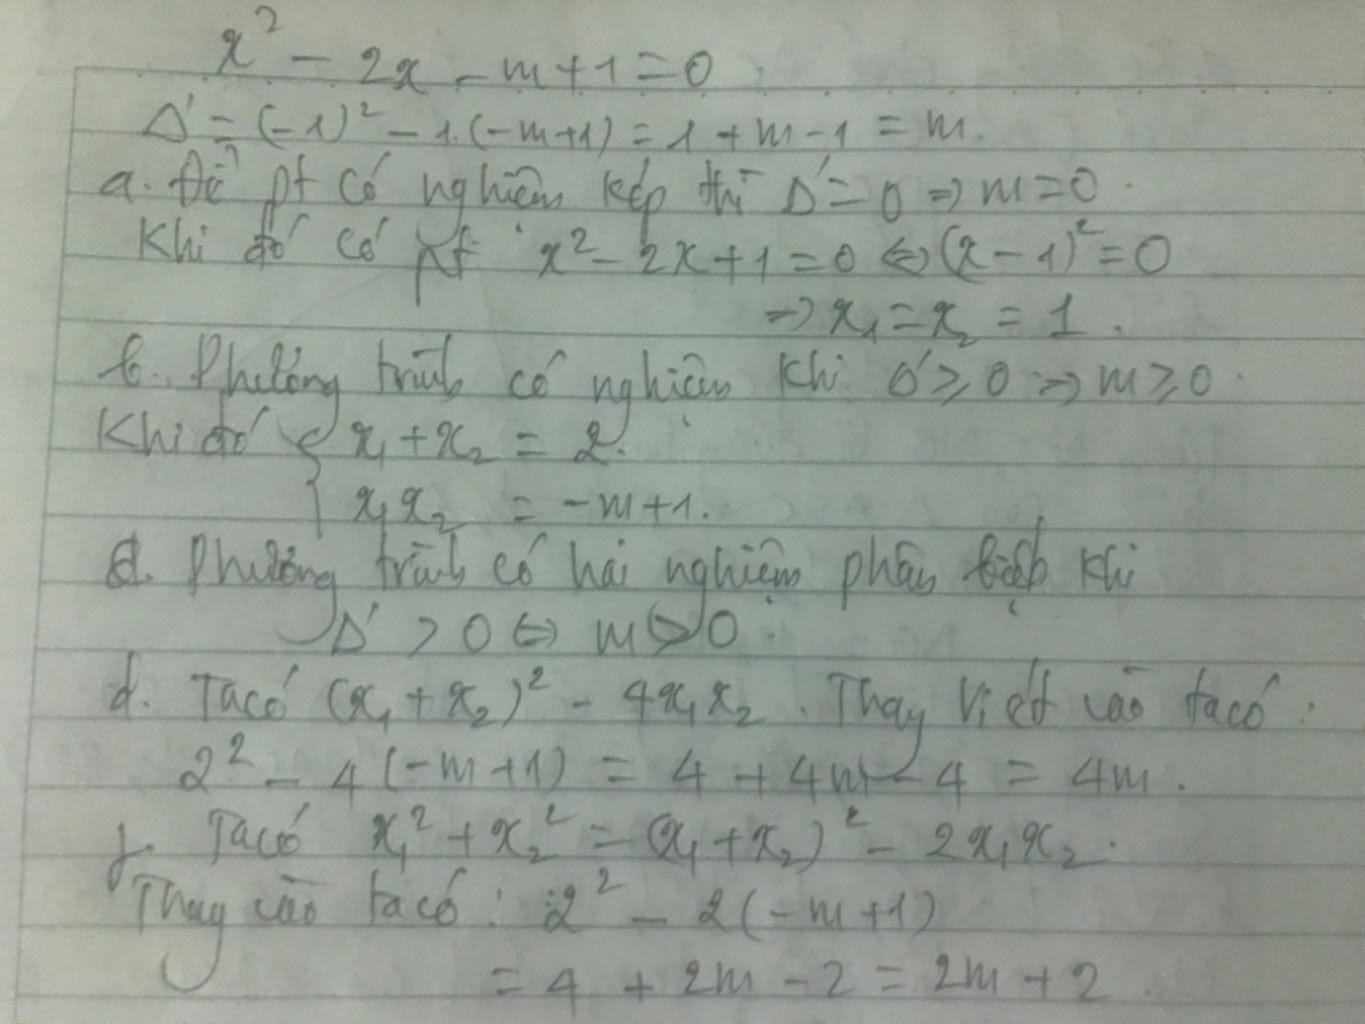 x² - 2x - m + 1 = 0
Δ' = (-1)² - 1.(-m+1) = 1 + m - 1 = m.
a. Để pt có nghiệm kép thì Δ' = 0 ⇒ m = 0.
Khi đó có pt x² - 2x + 1 = 0 ⇔ (x - 1)² = 0
⇒ x₁ = x₂ = 1.
b. Phương trình có nghiệm khi Δ' ≥ 0 ⇒ m ≥ 0.
Khi đó { x₁ + x₂ = 2.
x₁x₂ = -m+1.
d. Phương trình có hai nghiệm phân biệt khi
Δ' > 0 ⇔ m > 0.
d. Ta có (x₁ + x₂)² - 4x₁x₂. Thay Viét vào ta có:
2² - 4(-m+1) = 4 + 4m - 4 = 4m.
f. Ta có x₁² + x₂² = (x₁ + x₂)² - 2x₁x₂.
Thay vào ta có: 2² - 2(-m+1)
= 4 + 2m - 2 = 2m + 2